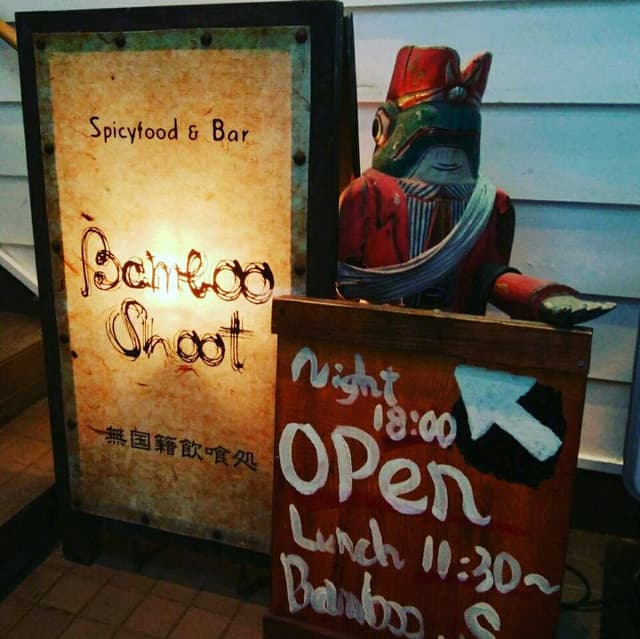 Spicyfood & Bar
Bamboo
Shoot
無国籍飲喰処
Night
18:00
OPen
Lunch 11:30~
Bamboo . S